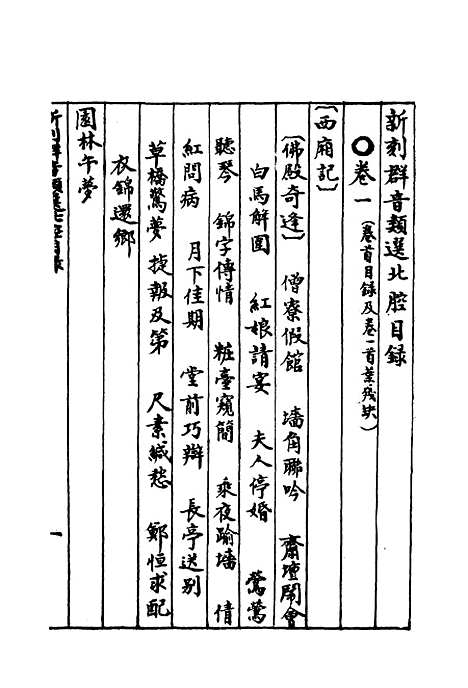 新刻群音類選北腔目録
●卷一（卷首目録及卷一首葉殘缺）
〔西廂記〕
〔佛殿奇逢〕 僧寮假館 墻角聯吟 齋壇鬧會
白馬解圍 紅娘請宴 夫人停婚 鶯鶯
聽琴 錦字傳情 粧臺窺簡 乘夜踰墻 倩
紅問病 月下佳期 堂前巧辯 長亭送别
草橋驚夢 捷報及第 尺素緘愁 鄭恒求配
衣錦還鄉
園林午夢
新刻群音類選北腔目録
一